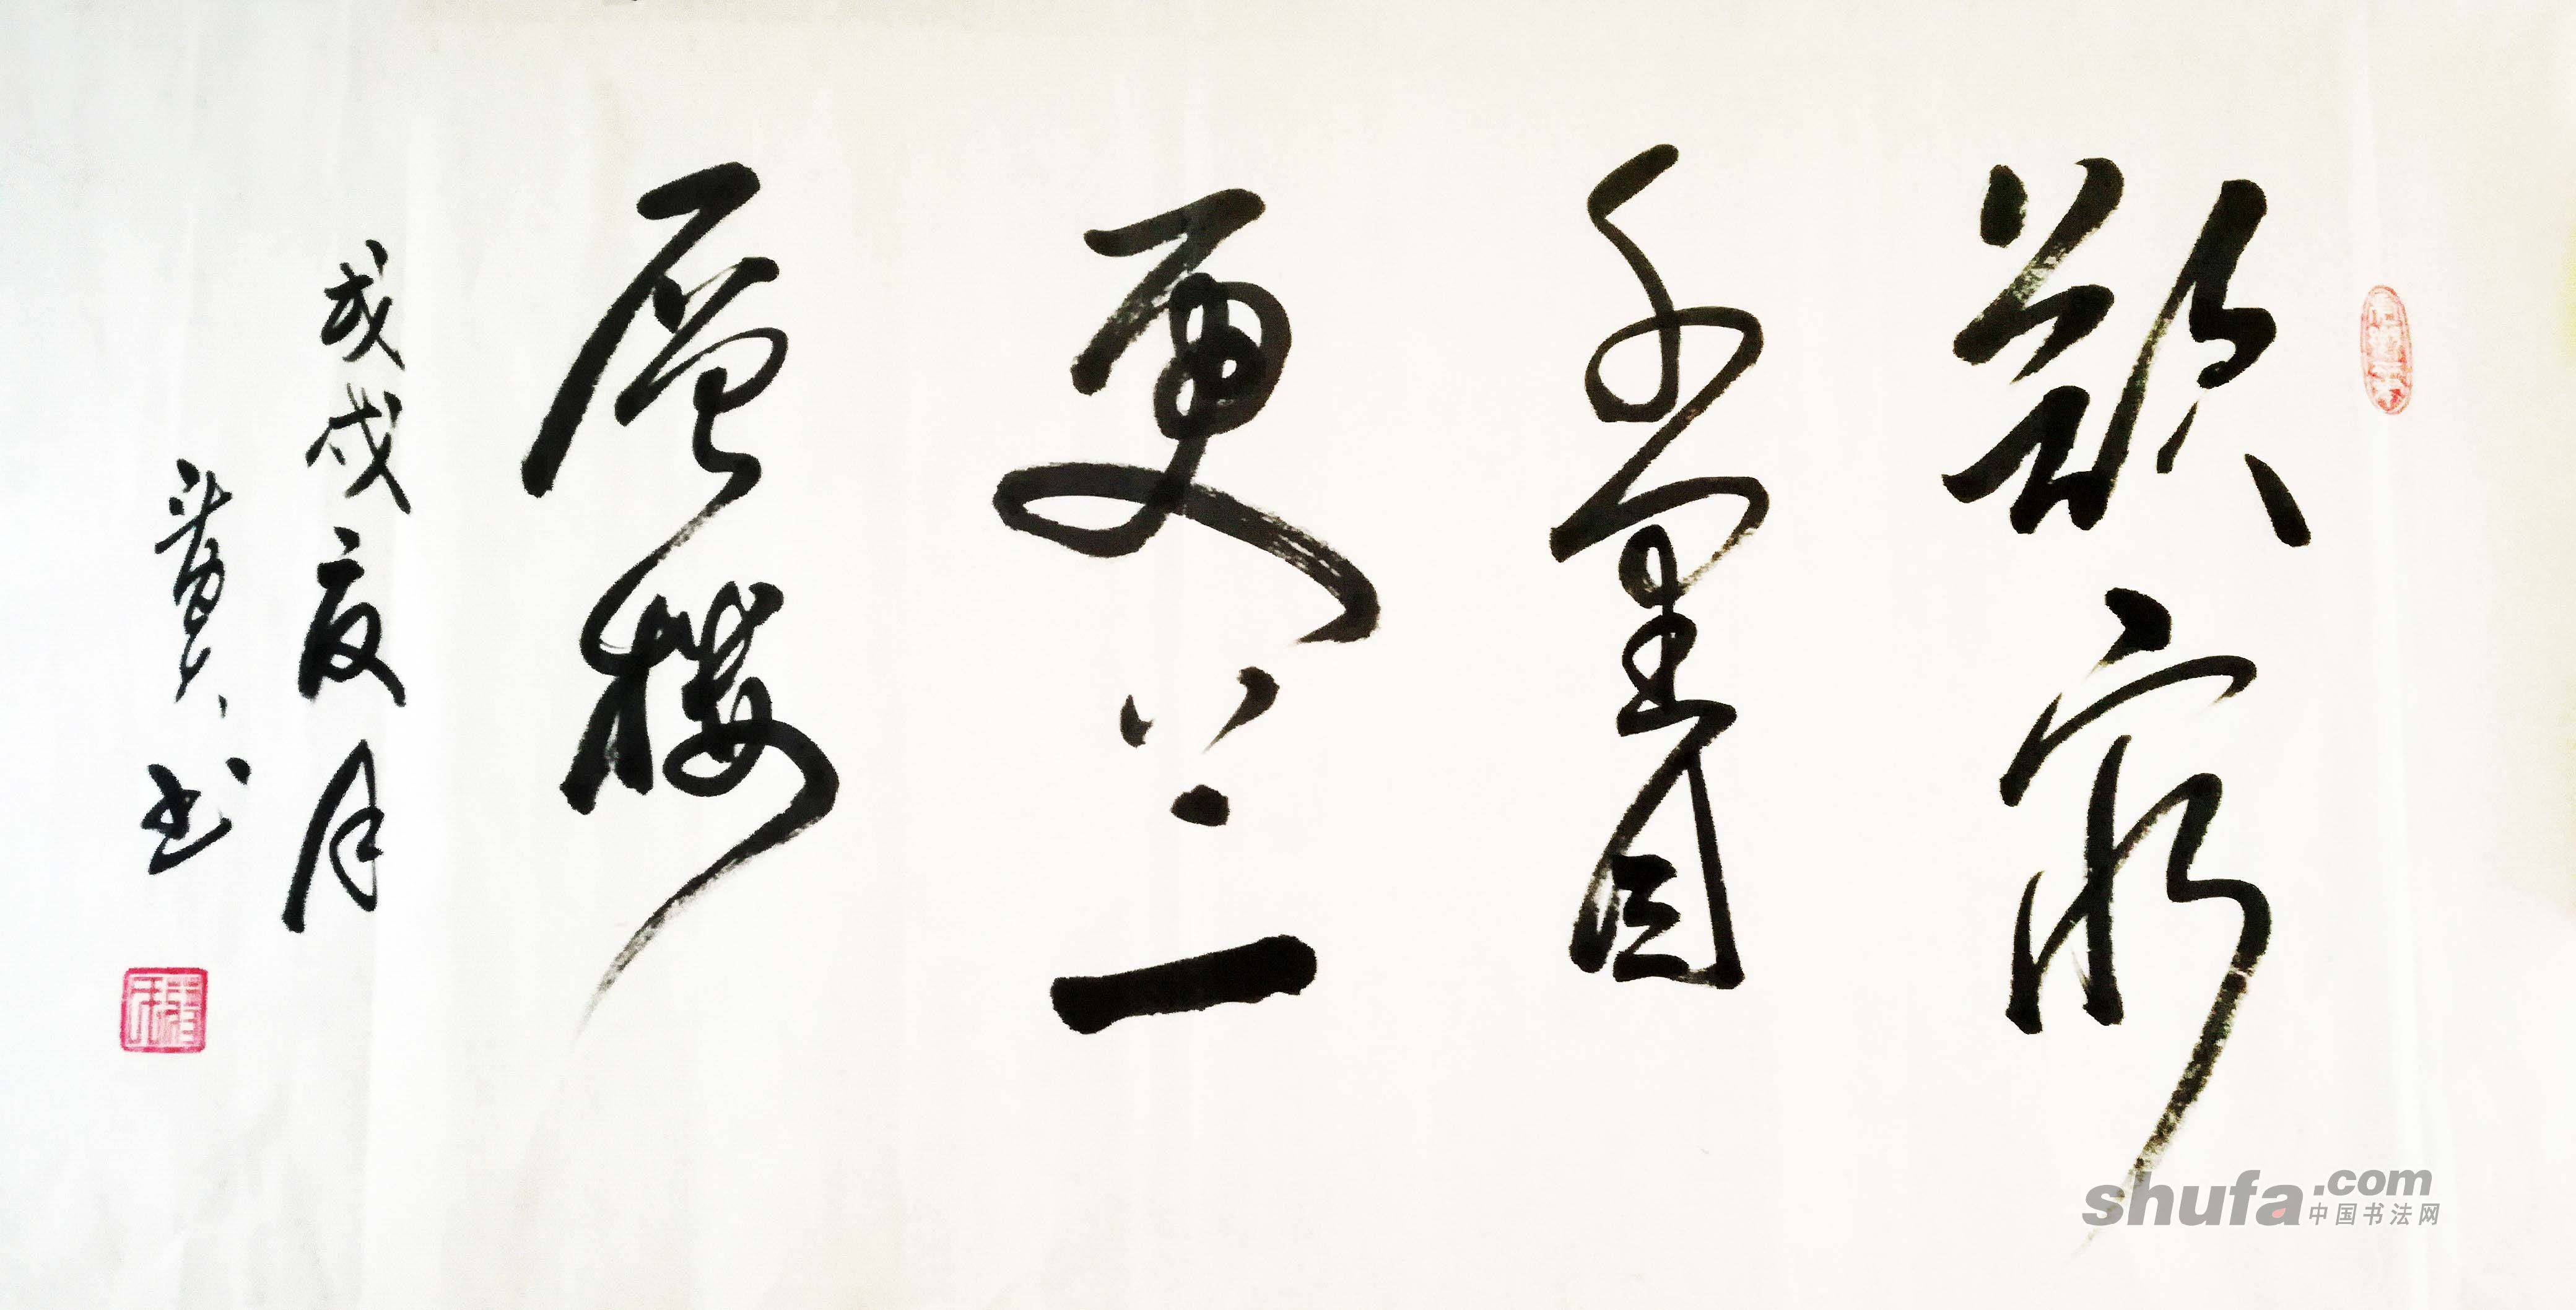 欲穷
千里目
更上一
层楼
戊戌夏月
书
shufa.com
中国书法网